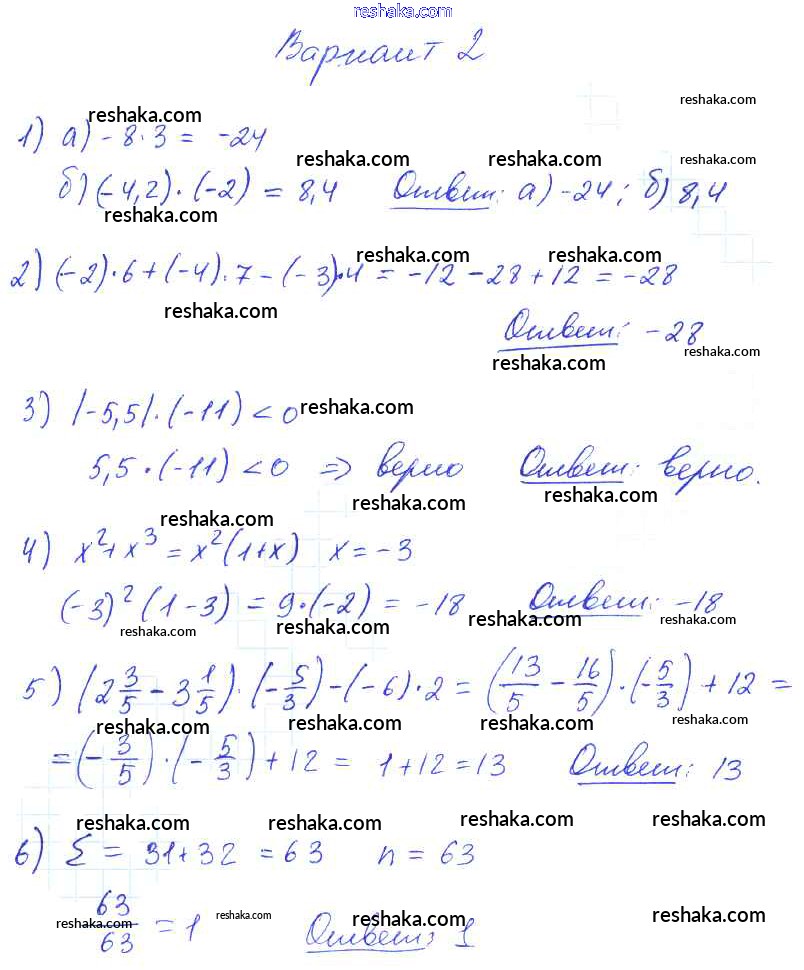 reshaka.com
Вариант 2
reshaka.com reshaka.com
1) а) -8·3 = -24
reshaka.com reshaka.com reshaka.com
б) (-4,2)·(-2) = 8,4 Ответ: а) -24; б) 8,4
reshaka.com reshaka.com
reshaka.com reshaka.com
2) (-2)·6+(-4)·7-(-3)·4 = -12-28+12 = -28
reshaka.com
Ответ: -28
reshaka.com reshaka.com
3) |-5,5|·(-11) < 0 reshaka.com
5,5·(-11) < 0 => верно Ответ: верно.
reshaka.com reshaka.com
reshaka.com
4) x²+x³ = x²(1+x) x = -3
(-3)²(1-3) = 9·(-2) = -18 Ответ: -18
reshaka.com reshaka.com reshaka.com reshaka.com
5) (2 3/5 - 3 1/5)·(-5/3)-(-6)·2 = (13/5 - 16/5)·(-5/3)+12 =
reshaka.com reshaka.com reshaka.com reshaka.com
= (-3/5)·(-5/3)+12 = 1+12 = 13 Ответ: 13
reshaka.com reshaka.com reshaka.com reshaka.com
6) Σ = 31+32 = 63 n = 63
63/63 = 1 Ответ: 1
reshaka.com reshaka.com reshaka.com reshaka.com